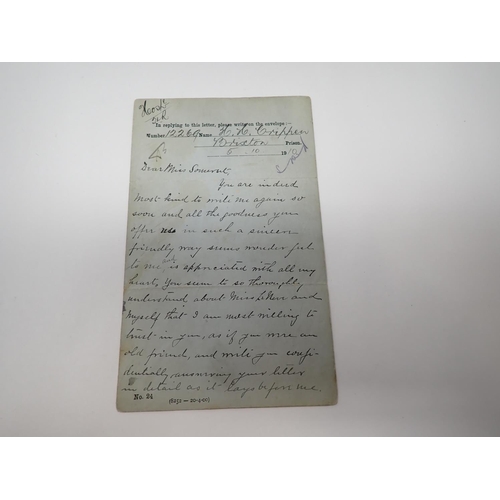 In replying to this letter, please write on the envelope:—
Number 12266 Name H. H. Crippen
Brixton Prison
5 . 10 19
Dear Miss Somerset,
You are indeed
most kind to write me again so
soon and all the goodness you
offer us in such a sincere
friendly way seems wonderful
to me, is appreciated with all my
heart, You seem to so thoroughly
understand about Miss LeNeve and
myself that I am most willing to
trust in you, as if you were an
old friend, and write you confi-
dentially, answering your letter
in detail as it lays before me.
No. 24